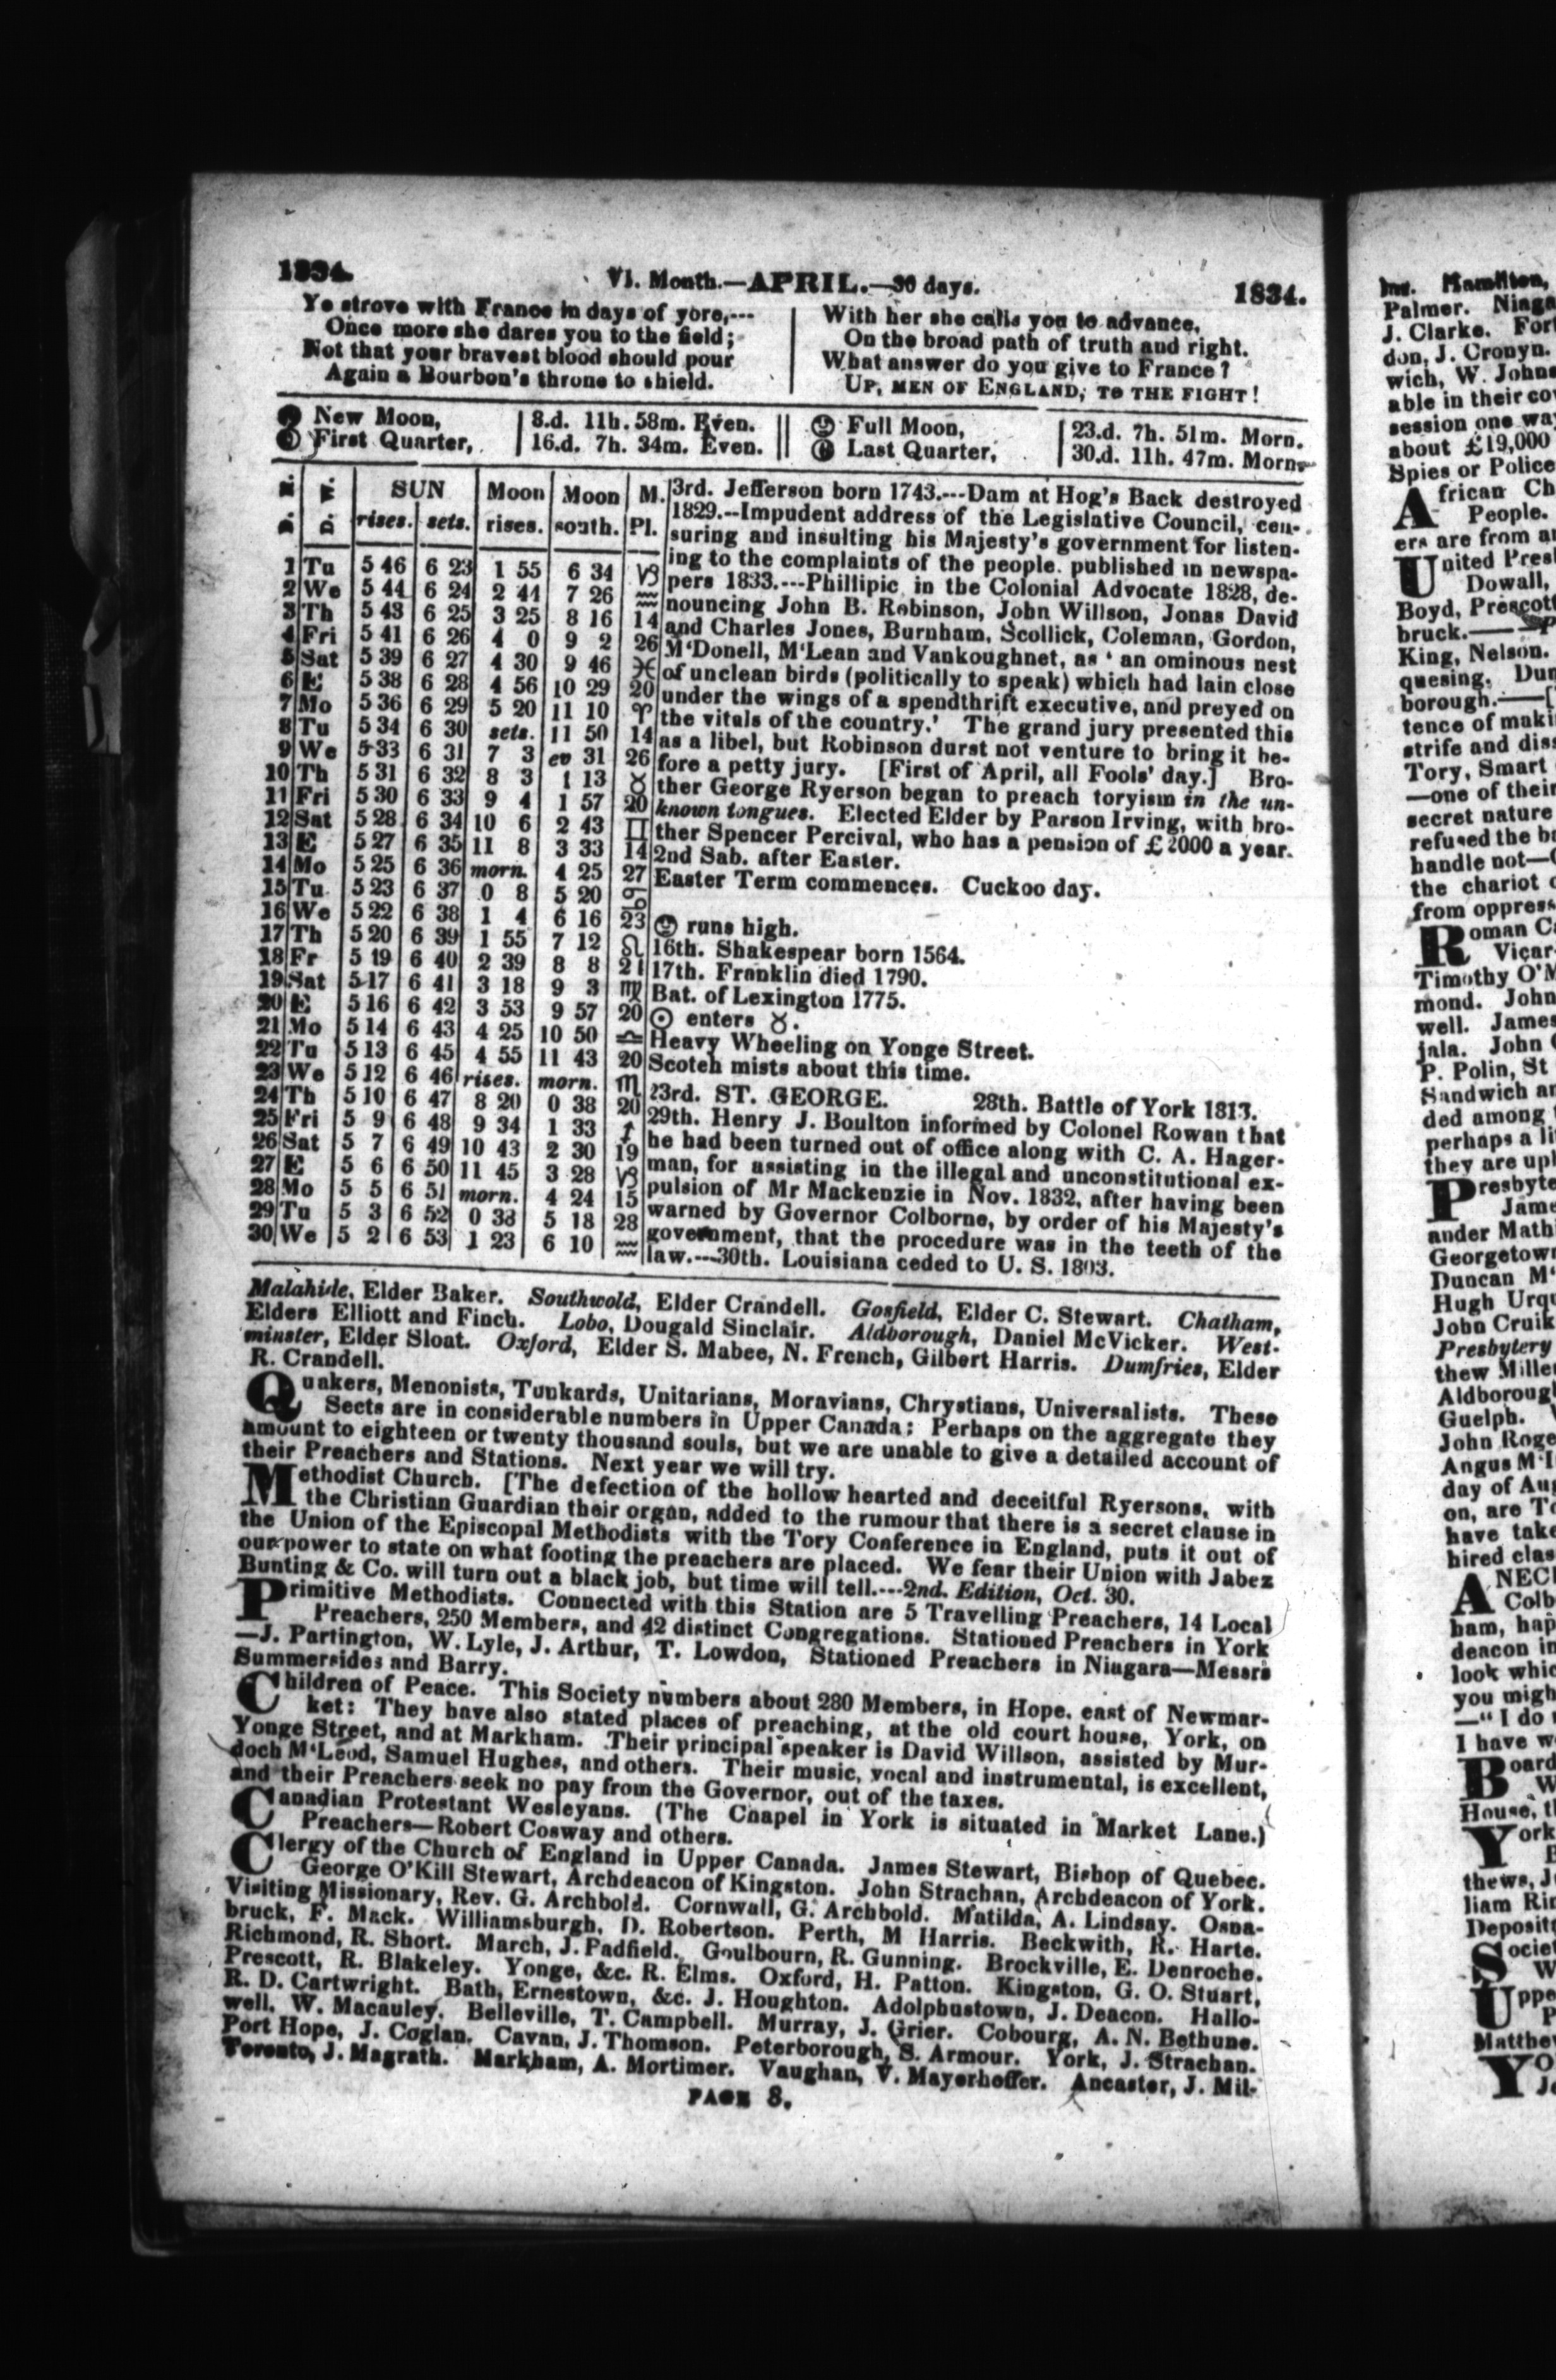 1834.
VI. Month.—APRIL.—30 days.
1834.
Ye strove with France in days of yore,---
Once more she dares you to the field;
Not that your bravest blood should pour
Again a Bourbon's throne to shield.
With her she calls you to advance,
On the broad path of truth and right.
What answer do you give to France?
UP, MEN OF ENGLAND, TO THE FIGHT!
New Moon, 8.d. 11h. 58m. Even.
First Quarter, 16.d. 7h. 34m. Even.
Full Moon, 23.d. 7h. 51m. Morn.
Last Quarter, 30.d. 11h. 47m. Morn.
D. M. D. W. SUN Moon Moon M.
rises. sets. rises. south. Pl.
1 Tu 5 46 6 23 1 55 6 34 ♑
2 We 5 44 6 24 2 44 7 26 ♒
3 Th 5 43 6 25 3 25 8 16 14
4 Fri 5 41 6 26 4 0 9 2 26
5 Sat 5 39 6 27 4 30 9 46 ♓
6 E 5 38 6 28 4 56 10 29 20
7 Mo 5 36 6 29 5 20 11 10 ♈
8 Tu 5 34 6 30 sets. 11 50 14
9 We 5 33 6 31 7 3 ev 31 26
10 Th 5 31 6 32 8 3 1 13 ♉
11 Fri 5 30 6 33 9 4 1 57 20
12 Sat 5 28 6 34 10 6 2 43 ♊
13 E 5 27 6 35 11 8 3 33 14
14 Mo 5 25 6 36 morn. 4 25 27
15 Tu 5 23 6 37 0 8 5 20 ♋
16 We 5 22 6 38 1 4 6 16 23
17 Th 5 20 6 39 1 55 7 12 ♌
18 Fr 5 19 6 40 2 39 8 8 21
19 Sat 5 17 6 41 3 18 9 3 ♍
20 E 5 16 6 42 3 53 9 57 20
21 Mo 5 14 6 43 4 25 10 50 ♎
22 Tu 5 13 6 45 4 55 11 43 20
23 We 5 12 6 46 rises. morn. ♏
24 Th 5 10 6 47 8 20 0 38 20
25 Fri 5 9 6 48 9 34 1 33 ♐
26 Sat 5 7 6 49 10 43 2 30 19
27 E 5 6 6 50 11 45 3 28 ♑
28 Mo 5 5 6 51 morn. 4 24 15
29 Tu 5 3 6 52 0 38 5 18 28
30 We 5 2 6 53 1 23 6 10 ♒
3rd. Jefferson born 1743.---Dam at Hog's Back destroyed
1829.--Impudent address of the Legislative Council, cen-
suring and insulting his Majesty's government for listen-
ing to the complaints of the people. published in newspa-
pers 1833.---Phillipic in the Colonial Advocate 1828, de-
nouncing John B. Robinson, John Willson, Jonas David
and Charles Jones, Burnham, Scollick, Coleman, Gordon,
M'Donell, M'Lean and Vankoughnet, as ' an ominous nest
of unclean birds (politically to speak) which had lain close
under the wings of a spendthrift executive, and preyed on
the vitals of the country.' The grand jury presented this
as a libel, but Robinson durst not venture to bring it be-
fore a petty jury. [First of April, all Fools' day.] Bro-
ther George Ryerson began to preach toryism in the un-
known tongues. Elected Elder by Parson Irving, with bro-
ther Spencer Percival, who has a pension of £2000 a year.
2nd Sab. after Easter.
Easter Term commences. Cuckoo day.
runs high.
16th. Shakespear born 1564.
17th. Franklin died 1790.
Bat. of Lexington 1775.
☉ enters ♉.
Heavy Wheeling on Yonge Street.
Scotch mists about this time.
23rd. ST. GEORGE. 28th. Battle of York 1813.
29th. Henry J. Boulton informed by Colonel Rowan that
he had been turned out of office along with C. A. Hager-
man, for assisting in the illegal and unconstitutional ex-
pulsion of Mr Mackenzie in Nov. 1832, after having been
warned by Governor Colborne, by order of his Majesty's
government, that the procedure was in the teeth of the
law.---30th. Louisiana ceded to U. S. 1803.
Malahide, Elder Baker. Southwold, Elder Crandell. Gosfield, Elder C. Stewart. Chatham,
Elders Elliott and Finch. Lobo, Dougald Sinclair. Aldborough, Daniel McVicker. West-
minster, Elder Sloat. Oxford, Elder S. Mabee, N. French, Gilbert Harris. Dumfries, Elder
R. Crandell.
Quakers, Menonists, Tunkards, Unitarians, Moravians, Chrystians, Universalists. These
Sects are in considerable numbers in Upper Canada; Perhaps on the aggregate they
amount to eighteen or twenty thousand souls, but we are unable to give a detailed account of
their Preachers and Stations. Next year we will try.
Methodist Church. [The defection of the hollow hearted and deceitful Ryersons, with
the Christian Guardian their organ, added to the rumour that there is a secret clause in
the Union of the Episcopal Methodists with the Tory Conference in England, puts it out of
our power to state on what footing the preachers are placed. We fear their Union with Jabez
Bunting & Co. will turn out a black job, but time will tell.---2nd. Edition, Oct. 30.
Primitive Methodists. Connected with this Station are 5 Travelling Preachers, 14 Local
Preachers, 250 Members, and 42 distinct Congregations. Stationed Preachers in York
—J. Partington, W. Lyle, J. Arthur, T. Lowdon, Stationed Preachers in Niagara—Messrs
Summersides and Barry.
Children of Peace. This Society numbers about 280 Members, in Hope. east of Newmar-
ket: They have also stated places of preaching, at the old court house, York, on
Yonge Street, and at Markham. Their principal speaker is David Willson, assisted by Mur-
doch M'Leod, Samuel Hughes, and others. Their music, vocal and instrumental, is excellent,
and their Preachers seek no pay from the Governor, out of the taxes.
Canadian Protestant Wesleyans. (The Chapel in York is situated in Market Lane.)
Preachers—Robert Cosway and others.
Clergy of the Church of England in Upper Canada. James Stewart, Bishop of Quebec.
George O'Kill Stewart, Archdeacon of Kingston. John Strachan, Archdeacon of York.
Visiting Missionary, Rev. G. Archbold. Cornwall, G. Archbold. Matilda, A. Lindsay. Osna-
bruck, F. Mack. Williamsburgh, D. Robertson. Perth, M Harris. Beckwith, R. Harte.
Richmond, R. Short. March, J. Padfield. Goulbourn, R. Gunning. Brockville, E. Denroche.
Prescott, R. Blakeley. Yonge, &c. R. Elms. Oxford, H. Patton. Kingston, G. O. Stuart,
R. D. Cartwright. Bath, Ernestown, &c. J. Houghton. Adolphustown, J. Deacon. Hallo-
well, W. Macauley. Belleville, T. Campbell. Murray, J. Grier. Cobourg, A. N. Bethune.
Port Hope, J. Coglan. Cavan, J. Thomson. Peterborough, S. Armour. York, J. Strachan.
Toronto, J. Magrath. Markham, A. Mortimer. Vaughan, V. Mayerhoffer. Ancaster, J. Mil-
PAGE 8.
Palmer. Niaga
J. Clarke. Fort
don, J. Cronyn.
wich, W. Johns
able in their co
session one wa
about £19,000
Spies or Police
African Ch
People.
ers are from a
United Pres
Dowall,
Boyd, Prescott
bruck.——P
King, Nelson.
quesing. Dun
borough.—[
tence of maki
strife and dis
Tory, Smart
—one of their
secret nature
refused the b
handle not—
the chariot
from oppress
Roman Ca
Vicar
Timothy O'M
mond. John
well. James
jala. John
P. Polin, St
Sandwich a
ded among
perhaps a li
they are up
Presbyte
Jame
ander Math
Georgetown
Duncan M'
Hugh Urqu
John Cruik
Presbytery
thew Miller
Aldboroug
Guelph.
John Roge
Angus M'
day of Au
on, are To
have take
hired clas
ANEC
Colb
ham, hap
deacon in
look whic
you migh
—" I do
I have w
Board
W
House, t
York
thews, J
liam Ri
Deposit
Societ
W
Uppe
P
Matthe
Yo
J